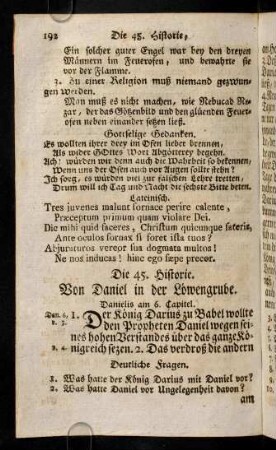 192 Die 45. Historie,
Ein solcher guter Engel war bey den dreyen
Männern im Feuerofen, und bewahrte sie
vor der Flamme.
3. Zu einer Religion muß niemand gezwun-
gen werden.
Man muß es nicht machen, wie Nebucad Ne-
zar, der das Götzenbild und den glüenden Feuer-
ofen neben einander setzen ließ.
Gottselige Gedanken.
Es wollten ihrer drey im Ofen lieber brennen,
Als wider GOttes Wort Abgötterey begehn.
Ach! würden wir denn auch die Wahrheit so bekennen,
Wenn uns der Ofen auch vor Augen sollte stehn?
Ich sorg, es würden viel zur falschen Lehre treten,
Drum will ich Tag und Nacht die sechste Bitte beten.
Lateinisch.
Tres juvenes malunt fornace perire calente,
Præceptum primum quam violare Dei.
Die mihi quid faceres, Christum quicunque fateris,
Ante oculos fornax si foret ista tuos?
Abjuraturos vereor sua dogmata multos!
Ne nos inducas! hinc ego sæpe precor.
Die 45. Historie.
Von Daniel in der Löwengrube.
Danielis am 6. Capitel.
Dan. 6, 1. Der König Darius zu Babel wollte
v. 3. den Propheten Daniel wegen sei-
nes hohen Verstandes über das ganze Kö-
v. 4. nigreich setzen. 2. Das verdroß die andern
Deutliche Fragen.
1. Was hatte der König Darius mit Daniel vor?
2. Was hatte Daniel vor Ungelegenheit davon?
am